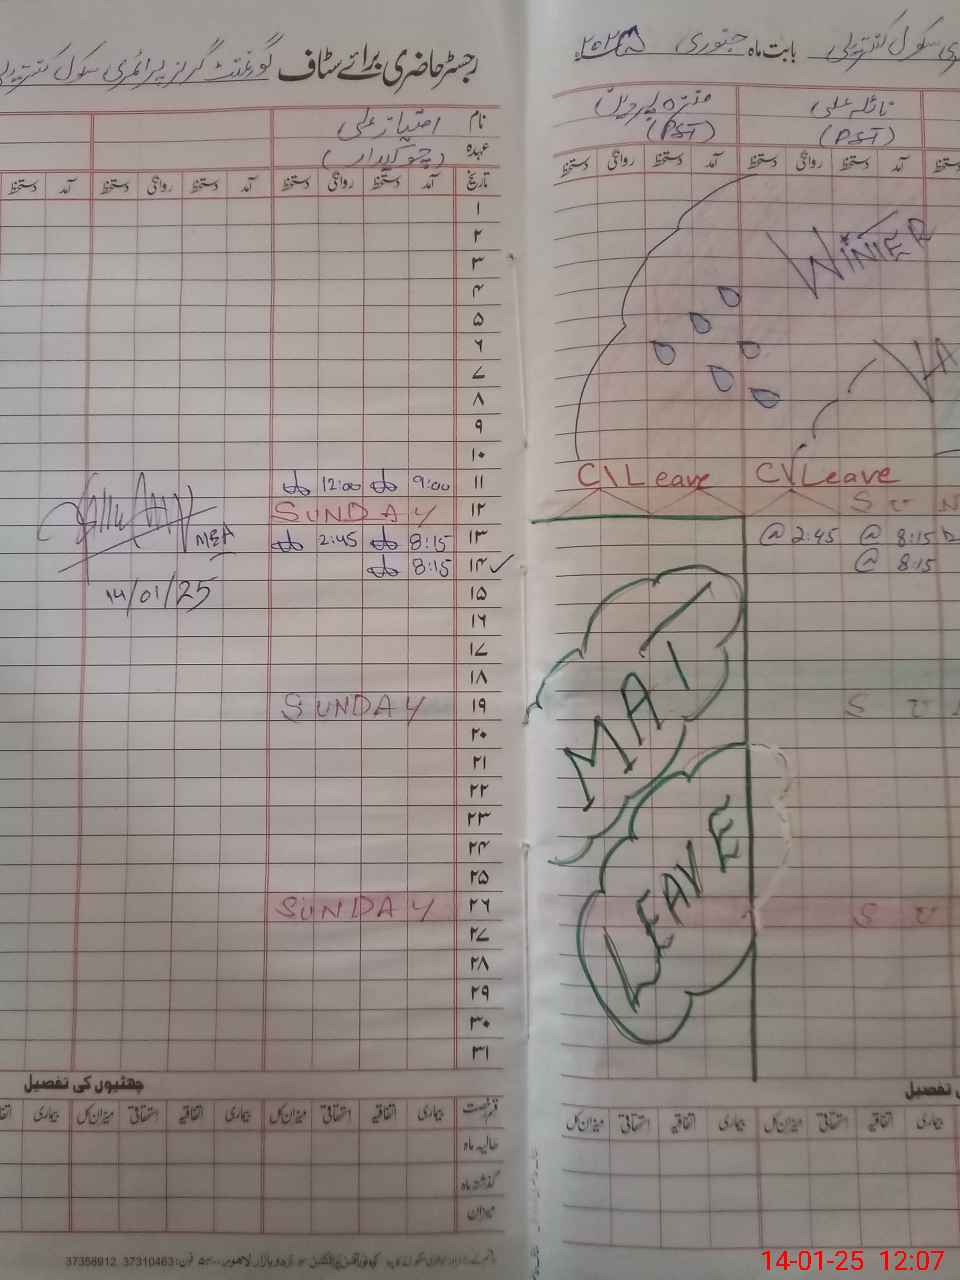 رجسٹر حاضری برائے سٹاف گورنمنٹ گرلز پرائمری سکول
نام امتیاز علی
عہدہ (چوکیدار)
تاریخ آمد دستخط روانگی دستخط آمد دستخط روانگی دستخط آمد دستخط
۱
۲
۳
۴
۵
۶
۷
۸
۹
۱۰
۱۱ 9:00 12:00
۱۲ SUNDAY
۱۳ 8:15 2:45
۱۴ 8:15
MEA
۱۵
14/01/25
۱۶
۱۷
۱۸
۱۹ SUNDAY
۲۰
۲۱
۲۲
۲۳
۲۴
۲۵
۲۶ SUNDAY
۲۷
۲۸
۲۹
۳۰
۳۱
چھٹیوں کی تفصیل
قسم رخصت بیماری اتفاقیہ استحقاقی میزان کل بیماری اتفاقیہ استحقاقی میزان کل بیماری
حالیہ ماہ
گذشتہ ماہ
میزان
37310463 37358912
سکول
بابت ماہ جنوری ۲۰۲۵
نائلہ علی
(PST) (PST)
آمد دستخط روانگی دستخط آمد دستخط روانگی دستخط
WINTER
VA
C\Leave C\Leave
S U N
@ 2:45 @ 8:15
@ 8:15
MAT
S U
LEAVE
S U
تفصیل
بیماری اتفاقیہ استحقاقی میزان کل بیماری اتفاقیہ استحقاقی میزان کل
14-01-25 12:07